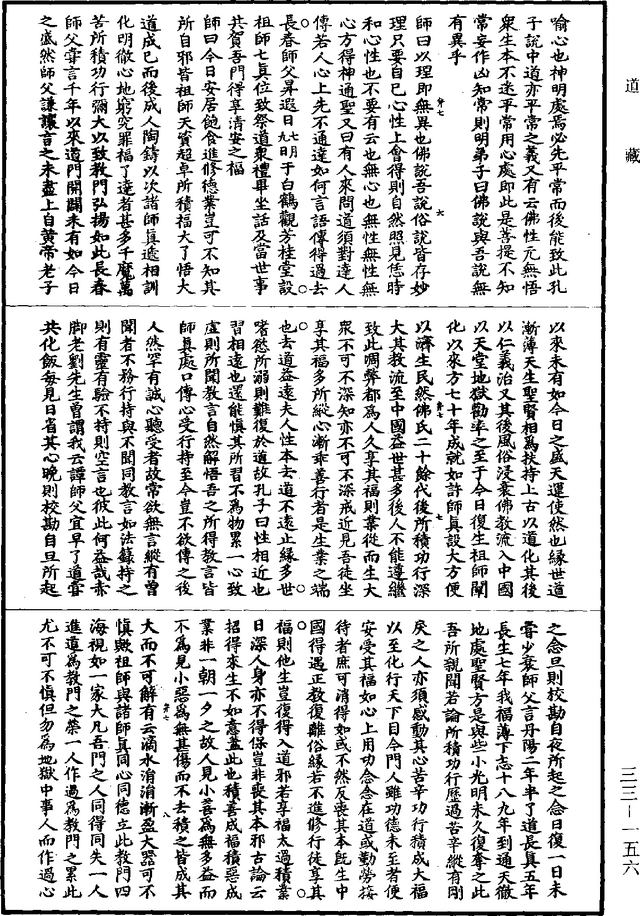 道藏
喻心也神明處焉必先平常而後能致此孔
子說中道亦平常之義又有云佛性元無悟
衆生本不迷平常用心處即此是菩提不知
常妄作凶知常則明弟子曰佛說與吾說無
有異乎
師曰以理即無異也佛說吾說俗說皆存妙
理只要自己心性上會得則自然照見恁時
和心性也不要有云也無心也無性無性無
心方得神通聖又曰有人來問道須對達人
傳若人心上先不通達如何言語傳得過去
長春師父昇遐日九七明于白鶴觀芳桂堂設
祖師七真位致祭道衆禮畢坐話及當世事
共賀吾門得享清安之福
師曰今日安居飽食進修德業豈可不知其
所自邪皆祖師天資超卓所積福大了悟大
道成已而後成人陶鑄以次諸師真遞相訓
化明徹心地窮究罪福了達者甚多千魔萬
苦所積功行彌大以致教門弘揚如此長春
師父嘗言千年以來道門開闢未有如今日
之盛然師父謙讓言之未盡上自黄帝老子
以來未有如今日之盛天運使然也緣世道
漸薄天生聖賢相為扶持上古以道化其後
以仁義治又其後風俗浸衰佛教流入中國
以天堂地獄勸率之至于今日復生祖師闡
化以來方七十年成就如許師真設大方便
以濟生民然佛氏二十餘代後所積功行深
大其教流至中國益世甚多後人不能遵繼
致此凋弊都為人久享其福則業從而生大
衆不可不深知亦不可不深戒近見吾徒坐
享其福多所縱心漸乖善行者是生業之端
也去道益遠夫人性本去道不遠止緣多世
嗜慾所溺則難復於道故孔子曰性相近也
習相遠也還能慎其所習不為物累一心致
虛則所聞教言自然解悟吾之所得教言皆
師真處口傳心受行持至今豈不欲傳之後
人然罕有誠心聽受者故常欲無言縱有曾
聞者不務行持與不聞同教言如法籙持之
則有靈有驗不持則空言也彼此何益哉赤
脚老劉先生曾謂我云譚師父宜早了道嘗
共化飯每見日省其心晚則校勘自旦所起
之念旦則校勘自夜所起之念日復一日未
嘗少衰師父言丹陽二年半了道長真五年
長生七年我福薄下志十八九年到通天徹
地處聖賢方是與些小光明未久復奪之此
吾所親聞若論所積功行歷過苦辛縱有剛
戾之人亦須感動其心苦辛功行積成大福
以至化行天下目今門人雖功德未至者便
安受其福如心上用功念念在道或勤勞接
待者庶可消得如或不然反喪其本旣生中
國得遇正教復離俗緣若不進修行徒享其
福則他生豈復得入道邪若享福太過積業
日深人身亦不得保豈非喪其本邪古論云
招得來生不如意盖此也積善成福積惡成
業非一朝一夕之故人見小善為無多益而
不為見小惡為無甚傷而不去積之皆成其
大而不可解有云滴水涓涓漸盈大器可不
慎歟祖師與諸師真同心同德立此教門四
海視如一家大凡吾門之人同得同失一人
進道為教門之榮一人作過為教門之累此
尤不可不慎但勿為地獄中事人而作過心
三三—一五六